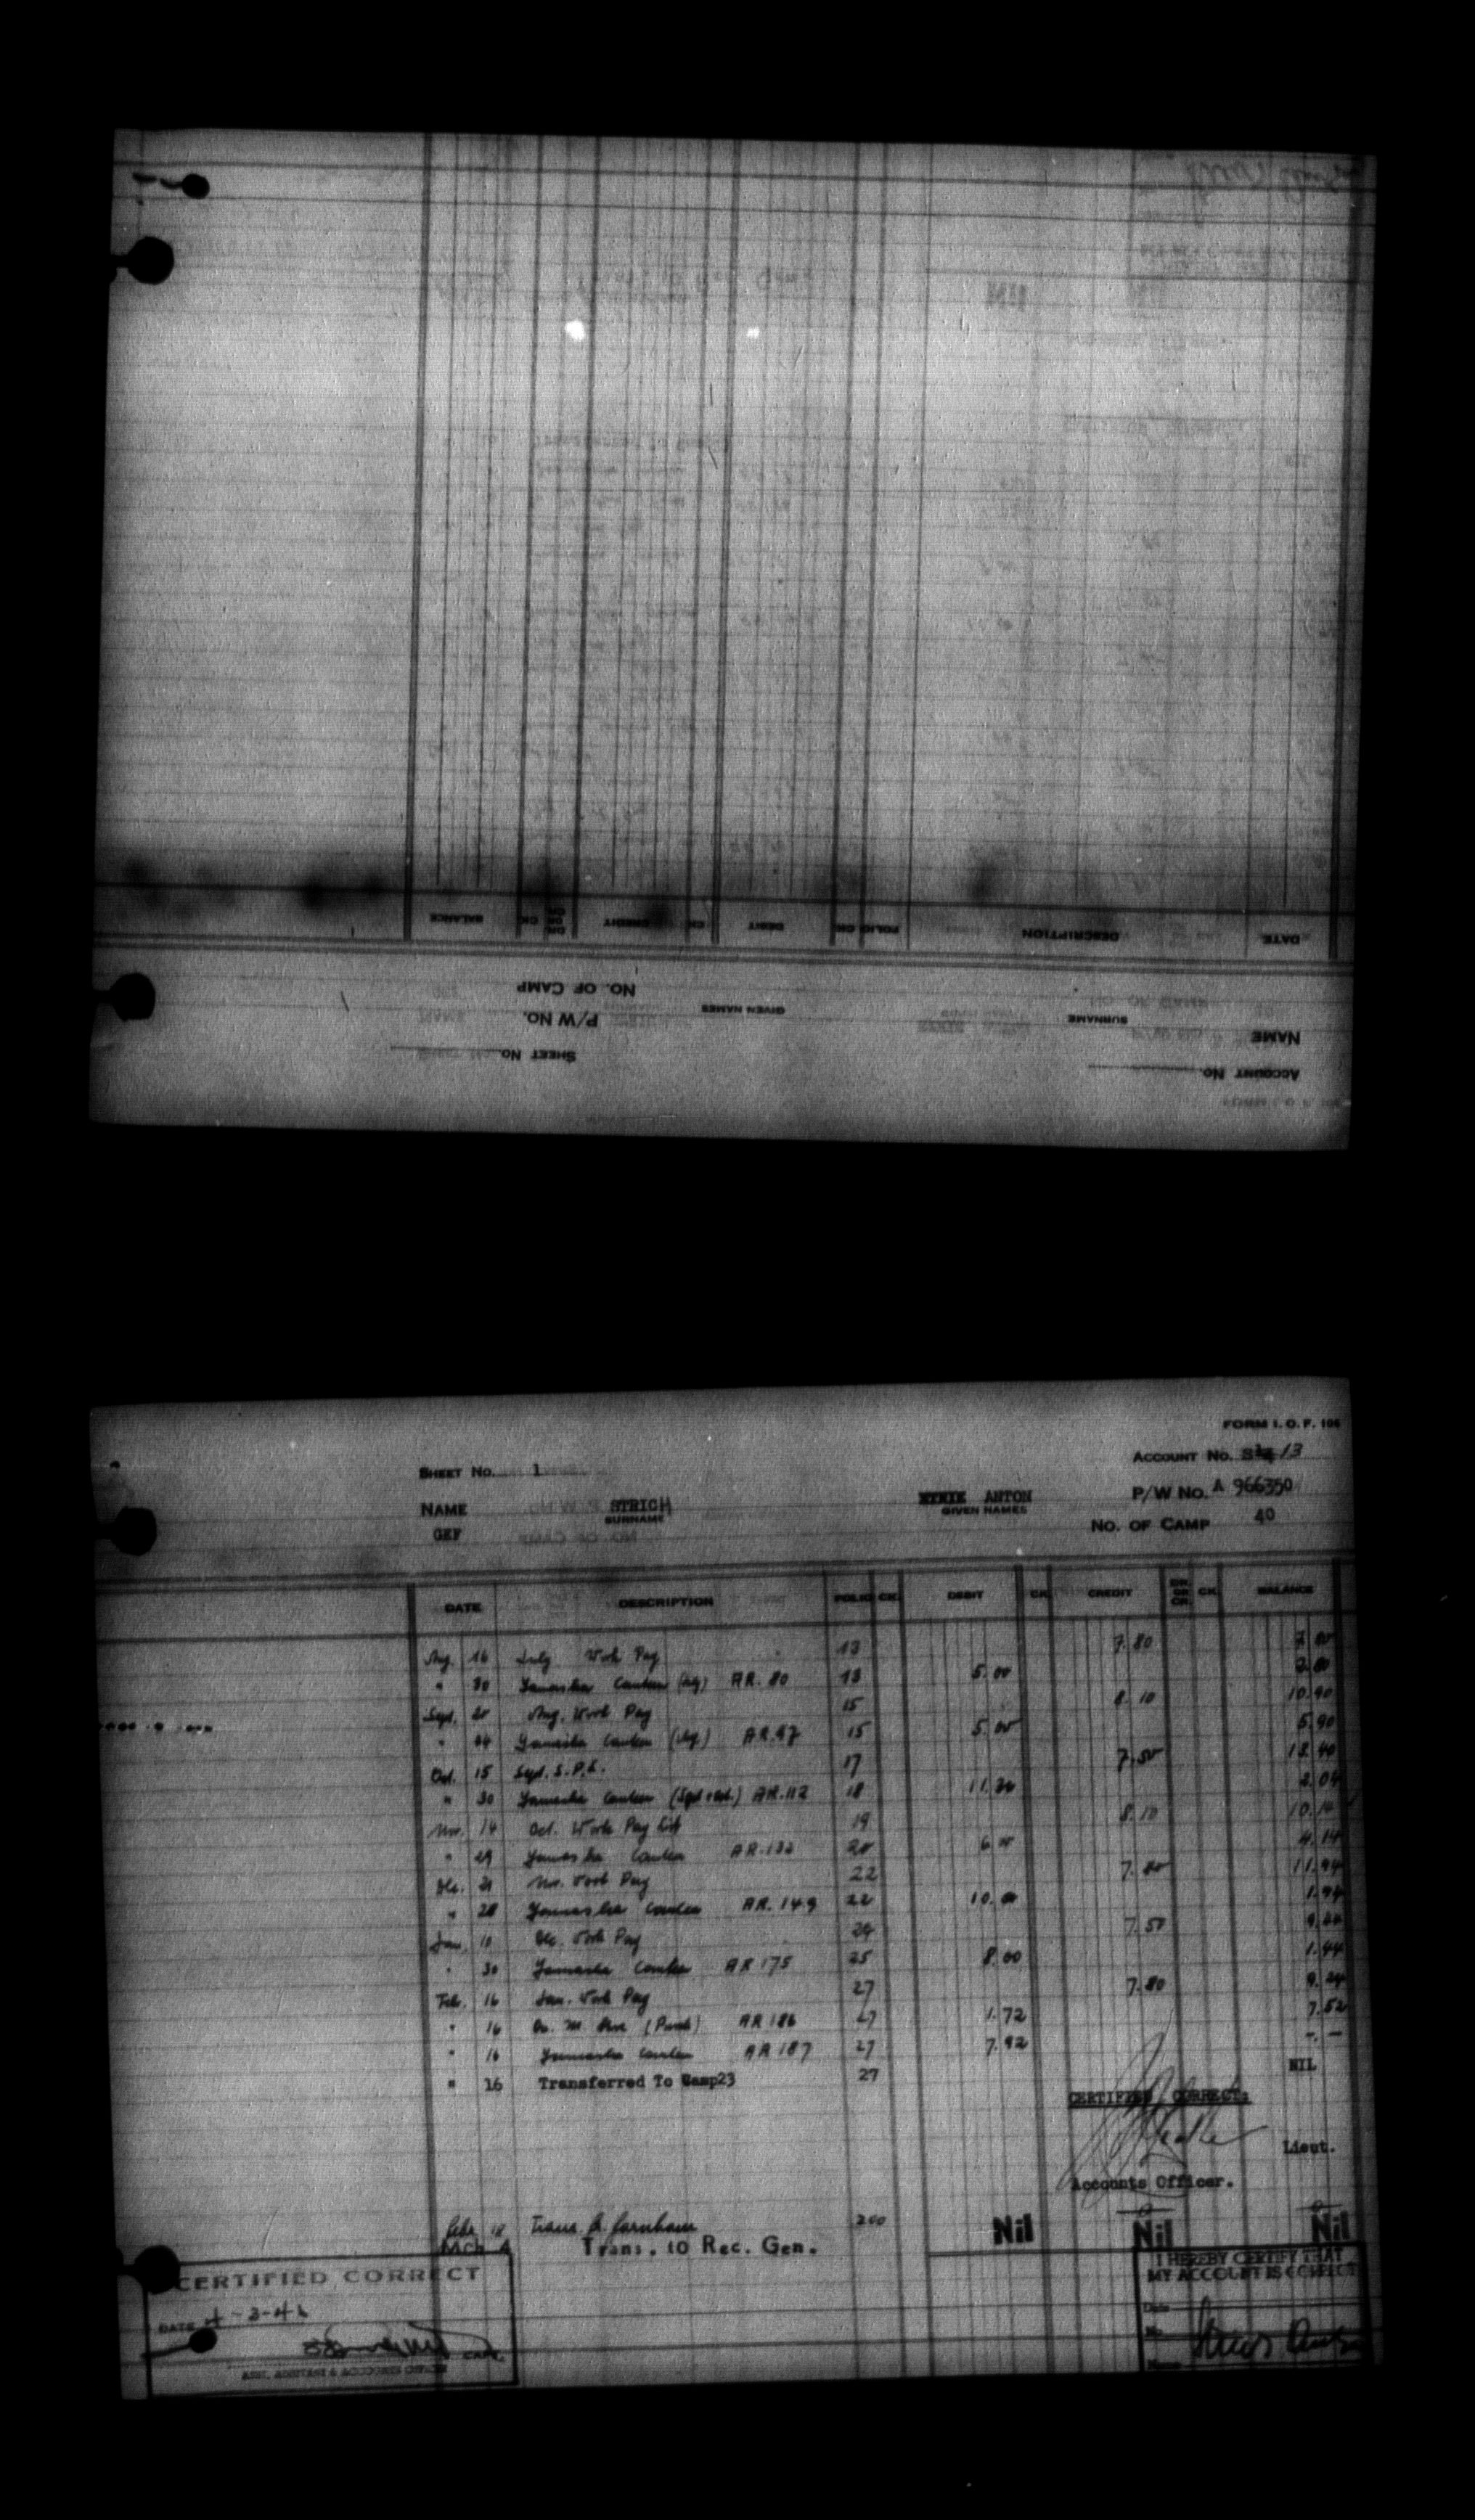 BALANCE CK. DR. OR CR. CREDIT CK. DEBIT CK. FOLIO DESCRIPTION DATE
NO. OF CAMP
P/W NO. GIVEN NAMES SURNAME NAME
SHEET NO. ACCOUNT NO.
FORM I. O. F. 106
SHEET NO. 1 ACCOUNT NO. 13
NAME STRICH ANTON P/W NO. A 966350
SURNAME GIVEN NAMES
GEF NO. OF CAMP 40
DATE DESCRIPTION FOLIO CK. DEBIT CK. CREDIT DR. OR CR. CK. BALANCE
Aug. 16 July Work Pay 13 7.80
" 30 Yamaska Canteen (Aug) AR. 80 13 5.00
Sept. 20 Aug. Work Pay 15 8.10 10.90
" 24 Yamaska Canteen (Aug.) AR.97 15 5.00 5.90
Oct. 15 Sept. S.P.L. 17 7.50 13.40
" 30 Yamaska Canteen (Sept & Oct.) AR.112 18 2.04
Nov. 14 Oct. Work Pay List 19 8.10 10.14
" 29 Yamaska Canteen AR.132 20 6.00 4.14
Dec. 21 Nov. Work Pay 22 7.80 11.94
" 28 Yamaska Canteen AR. 149 22 10.00 1.94
Jan. 10 Dec. Work Pay 24 7.50 9.44
" 30 Yamaska Canteen AR 175 25 8.00 1.44
Feb. 16 Jan. Work Pay 27 7.80 9.24
" 16 AR 186 27 1.72 7.52
" 16 Yamaska Canteen AR 187 27 7.92 -. -
" 16 Transferred To Camp23 27 NIL
CERTIFIED CORRECT:
Lieut.
Accounts Officer.
Febr 18 Trans. to Farnham 200
Mch 4 Trans. to Rec. Gen. Nil Nil Nil
CERTIFIED CORRECT
DATE 4-3-46
CAPT.
ASST. ADJUTANT & ACCOUNTS OFFICER
I HEREBY CERTIFY THAT
MY ACCOUNT IS CORRECT
Date
No
Name